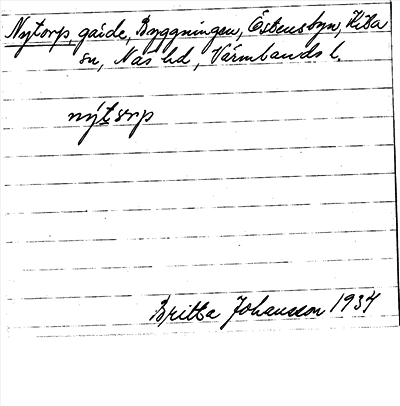 Nytorp, gärde, Byggningen, Esbensbyn, Kila
sn, Näs hd, Värmlands l.
nýtorp
Britta Johansson 1934